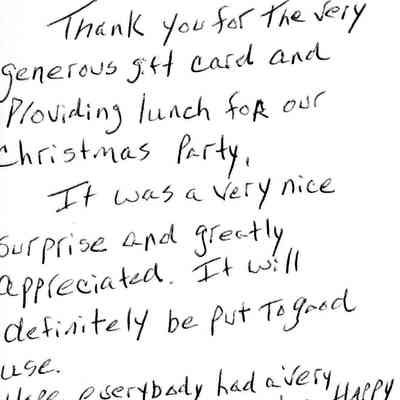 Thank you for the very
generous gift card and
Providing lunch for our
Christmas Party,
It was a very nice
surprise and greatly
appreciated. It will
definitely be put to good
use.
everybody had a very HAPPY